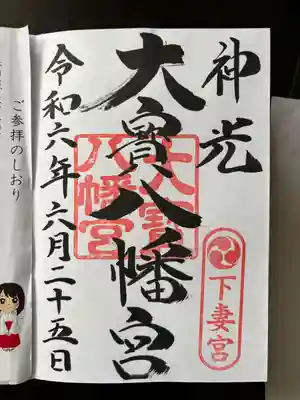 神光
大寳八幡宮
令和六年六月二十五日
大寳
八幡宮
下妻宮
ご参拝のしおり